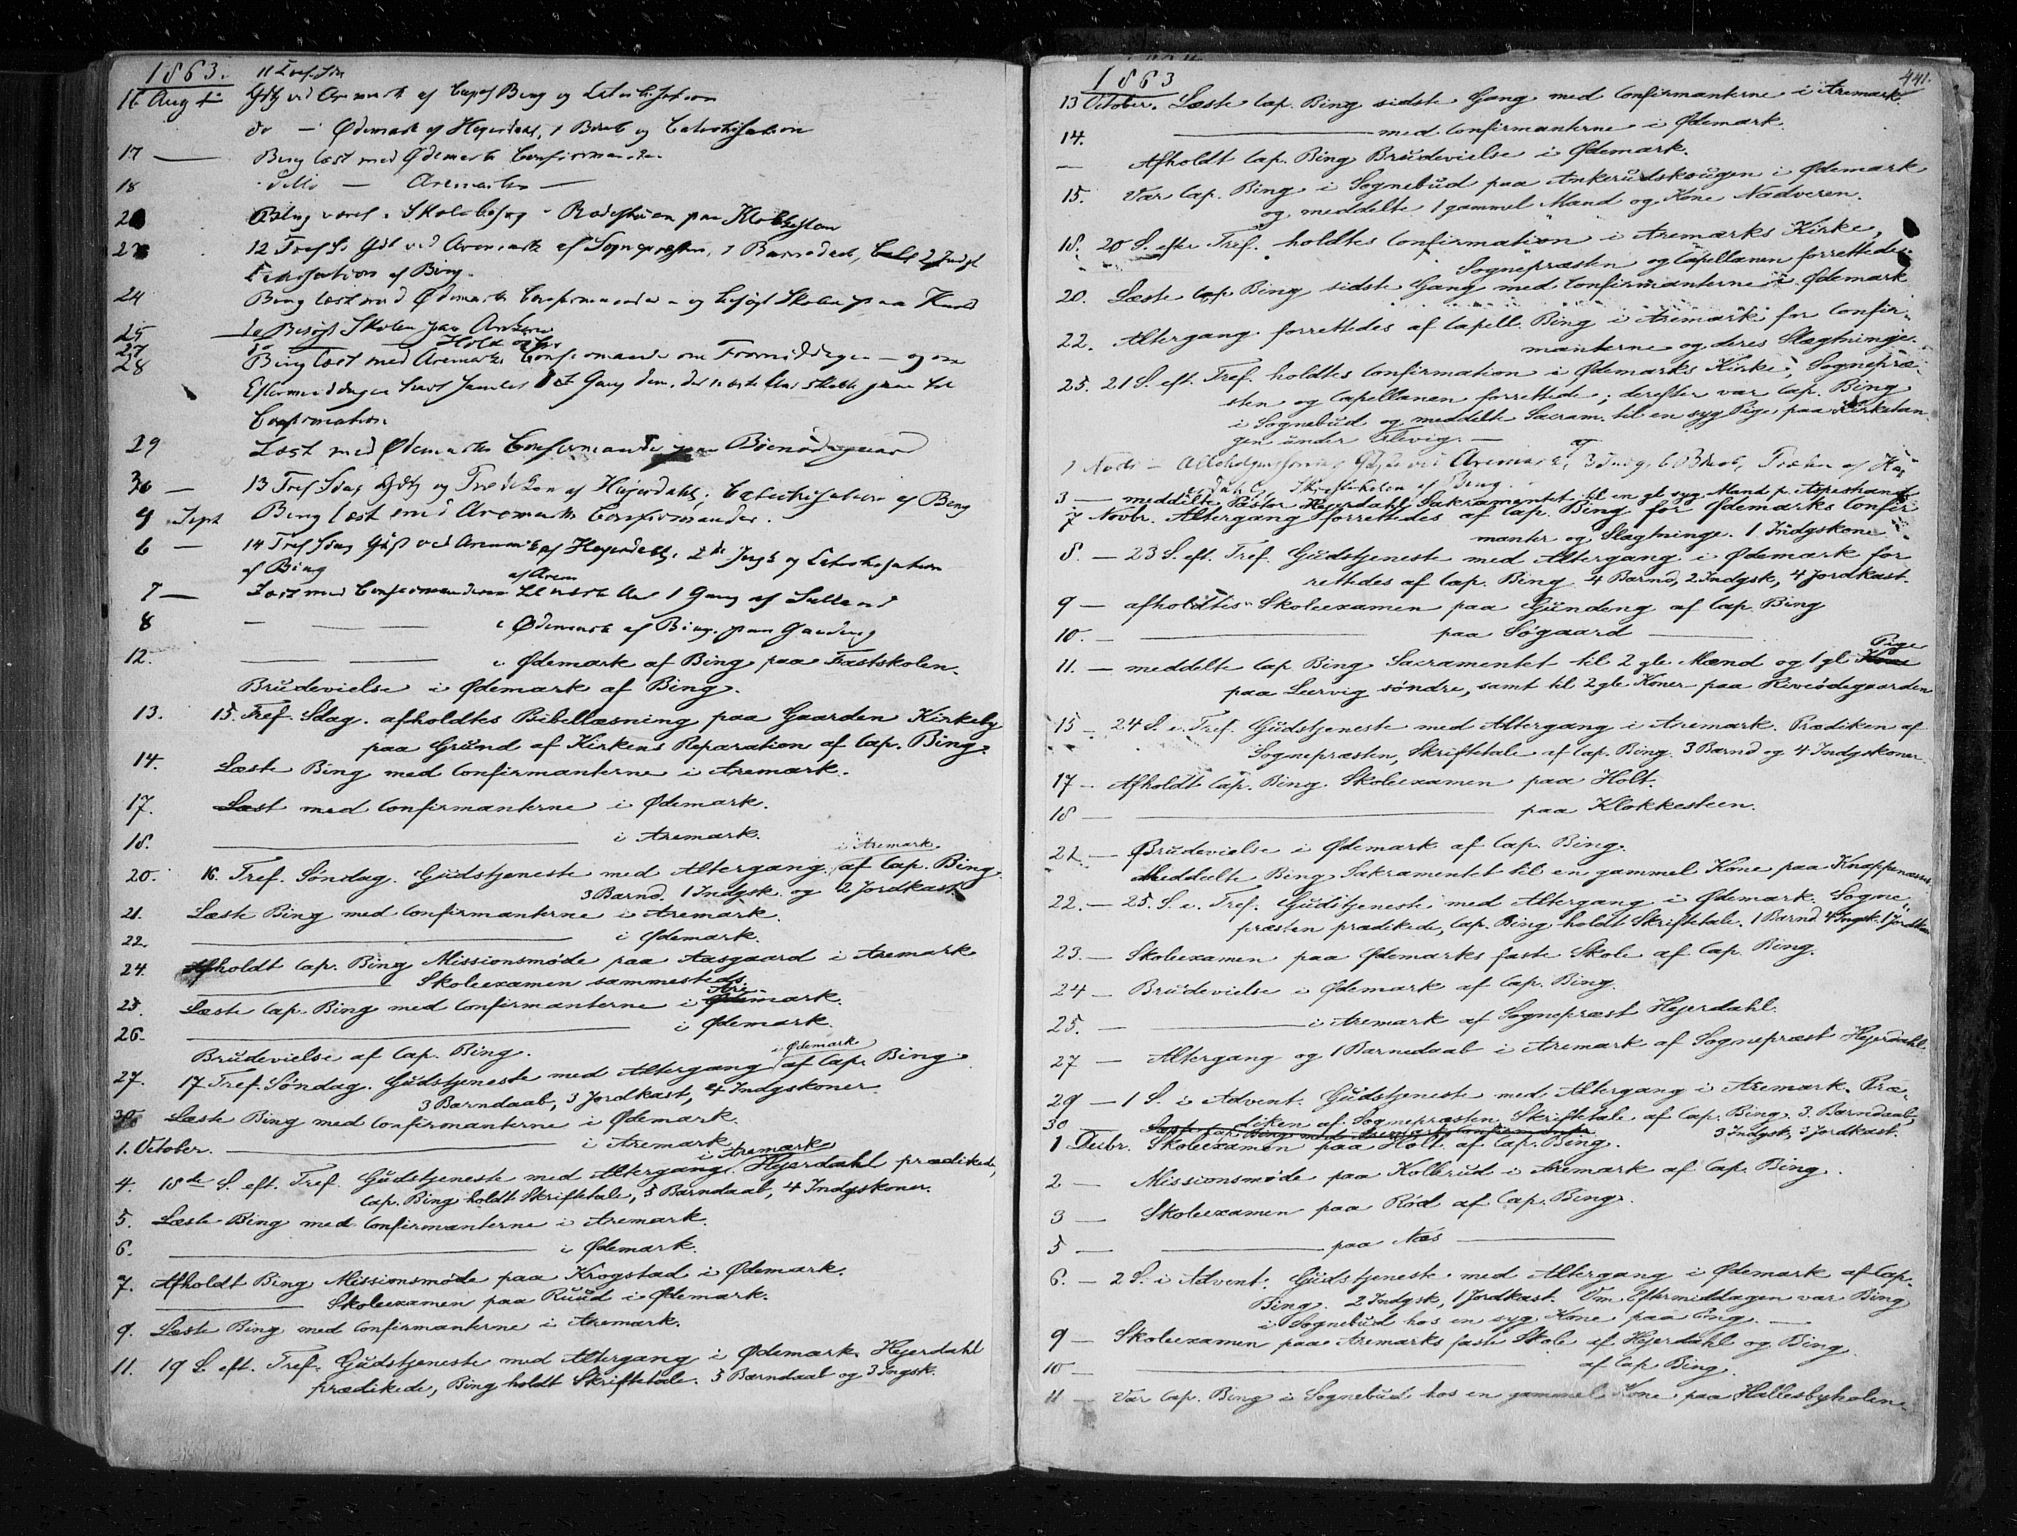 1863.
16 Aug
do — Ødemark af Hejerdahl, 1 Barnb og Catechisation
17 — Bing læst med Ødemarks Confirmander
18 ditto — Aremarks —
12 Tref S. Gdt ved Aremark af Sognepræsten, 1 Barnedaab,
af Bing.
24 Bing læst med Ødemarks Confirmander og besøgt Skolen paa
25 do Besøgt Skolen paa
27 do Holt
28 Bing læst med Aremarks Confirmander om Formiddagen — og om
Confirmation.
29 Læst med Ødemarks Confirmander paa Bøenødegaard
30 — 13 Tref Sdag Gdtj og Prædiken af Hejerdahl. Catechisation af Bing
Sept Bing læst med Aremarks Confirmander.
6 — 14 Tref Sdag Gdst ved Aremark af Hejerdahl. og Catechisation
af Bing
7 — Læst med Confirmanderne af Arem 1 Gang af
8 — — — i Ødemark af Bing paa Gundeng
12. — — — i Ødemark af Bing paa Fastskolen.
Brudevielse i Ødemark af Bing.
13. 15. Tref. Sdag. afholdtes Bibellæsning paa Gaarden Kirkeby
paa Grund af Kirkens Reparation af Cap. Bing.
14. Læste Bing med Confirmanterne i Aremark.
17. Læst med Confirmanterne i Ødemark.
18. — i Aremark.
i Aremark
20. 16. Tref. Søndag. Gudstjeneste med Altergang af Cap. Bing.
3 Barnd. 1 Indgsk. og 2 Jordkast.
21. Læste Bing med Confirmanterne i Aremark.
22. — i Ødemark.
24. Afholdt Cap. Bing Missionsmøde paa Aasgaard i Aremark
— Skoleexamen sammesteds.
Are
25. Læste Cap. Bing med Confirmanterne i Ødemark.
26. — i Ødemark.
Brudevielse af Cap. Bing.
i Ødemark
27. 17 Tref. Søndag. Gudstjeneste med Altergang af Cap. Bing.
3 Barndaab, 3 Jordkast, 4 Indgskoner.
30. Læste Bing med Confirmanterne i Ødemark.
1. October. — i Aremark.
i Aremark
4. 18de S. eft. Tref. Gudstjeneste med Altergang. Hejerdahl prædikede,
Cap. Bing holdt Skriftetale, 5 Barndaab, 4 Indgskoner.
5. Læste Bing med Confirmanterne i Aremark.
6. — i Ødemark.
7. Afholdt Bing Missionsmøde paa Krogstad i Ødemark.
— Skoleexamen paa Ruud i Ødemark.
9. Læste Bing med Confirmanterne i Aremark.
11. 19 S. eft. Tref. Gudstjeneste med Altergang i Ødemark. Hejerdahl
prædikede, Bing holdt Skriftetale. 5 Barndaab og 3 Ingsk.
1863
441.
13 October. Læste Cap. Bing sidste Gang med Confirmanterne i Aremark.
14. — med Confirmanterne i Ødemark.
— Afholdt Cap. Bing Brudevielse i Ødemark.
15. Var Cap. Bing i Sognebud paa Ankerudskougen i Ødemark
og meddelte 1 gammel Mand og Kone Nadveren.
18. 20 S. efter Tref. holdtes Confirmation i Aremarks Kirke,
Sognepræsten og Capellanen forrettede.
20. Læste Cap Bing sidste Gang med Confirmanterne i Ødemark
22. Altergang forrettedes af Capell. Bing i Aremark for Confir-
manterne og deres Slægtninge.
25. 21 S. eft. Tref. holdtes Confirmation i Ødemarks Kirke, Sognepræ-
sten og Capellanen forrettede; derefter var Cap. Bing
i Sognebud og meddelte Sacram. til en syg Pige paa Kirketan
gen under Ulevig. —
1 Novbr — Gdstj ved Aremark,
3 — meddelte Pastor Hejerdahl Sakramentet til en gl. syg Mand p. Aspestrand
7 Novbr. Altergang forrettedes af Cap. Bing for Ødemarks Confir
manter og Slægtninge. 1 Indgskone
8. — 23 S. eft. Tref. Gudstjeneste med Altergang i Ødemark for
rettedes af Cap. Bing 4 Barnd, 2 Indgsk, 4 Jordkast.
9 — afholdtes Skoleexamen paa Gundeng af Cap. Bing
10. — — paa Søgaard —
Pige
11. — meddelte Cap Bing Sacramentet til 2 gle Mænd og 1 gl Kone
paa Leervig søndre, samt til 2 gle Koner paa Riveødegaarden
15 — 24 S. e. Tref. Gudstjeneste med Altergang i Aremark. Prædiken af
Sognepræsten, Skriftetale af Cap. Bing. 3 Barnd og 4 Indgskoner.
17 — Afholdt Cap. Bing Skoleexamen paa Holt.
18 — — paa Klokkesteen.
21. — Brudevielse i Ødemark af Cap. Bing.
Meddelte Bing Sakramentet til en gammel Kone paa Knappenæsset
22. — 25. S. e. Tref. Gudstjeneste med Altergang i Ødemark. Sogne-
præsten prædikede, Cap. Bing holdt Skriftetale. 1 Barnd 4 Ingsk. 1 Jordkast
23. — Skoleexamen paa Ødemarks faste Skole af Cap. Bing.
24 — Brudevielse i Ødemark af Cap. Bing.
25. — — i Aremark af Sognepræst Hejerdahl.
27 — Altergang og 1 Barnedaab i Aremark af Sognepræst Hejerdahl
29 — 1 S. i Advent. Gudstjeneste med Altergang i Aremark. Præ-
diken af Sognepræsten, Skriftetale af Cap. Bing. 3. Barndaab,
3 Indgsk, 3 Jordkast.
30
1 Decbr. Skoleexamen paa Holt af Cap. Bing.
2 — Missionsmøde paa Kolbrud i Aremark af Cap. Bing.
3 — Skoleexamen paa Rød af Cap. Bing.
5 — — paa Næs —
6. — 2 S. i Advent. Gudstjeneste med Altergang i Ødemark af Cap.
Bing. 2 Indgsk, 1 Jordkast. Om Eftermiddagen var Bing
i Sognebud hos en syg Kone paa Eng. —
9 — Skoleexamen paa Aremarks faste Skole af Hejerdahl og Bing.
10 — — af Cap Bing.
11 — Var Cap. Bing i Sognebud hos en gammel Kone paa Hallesbyholen.